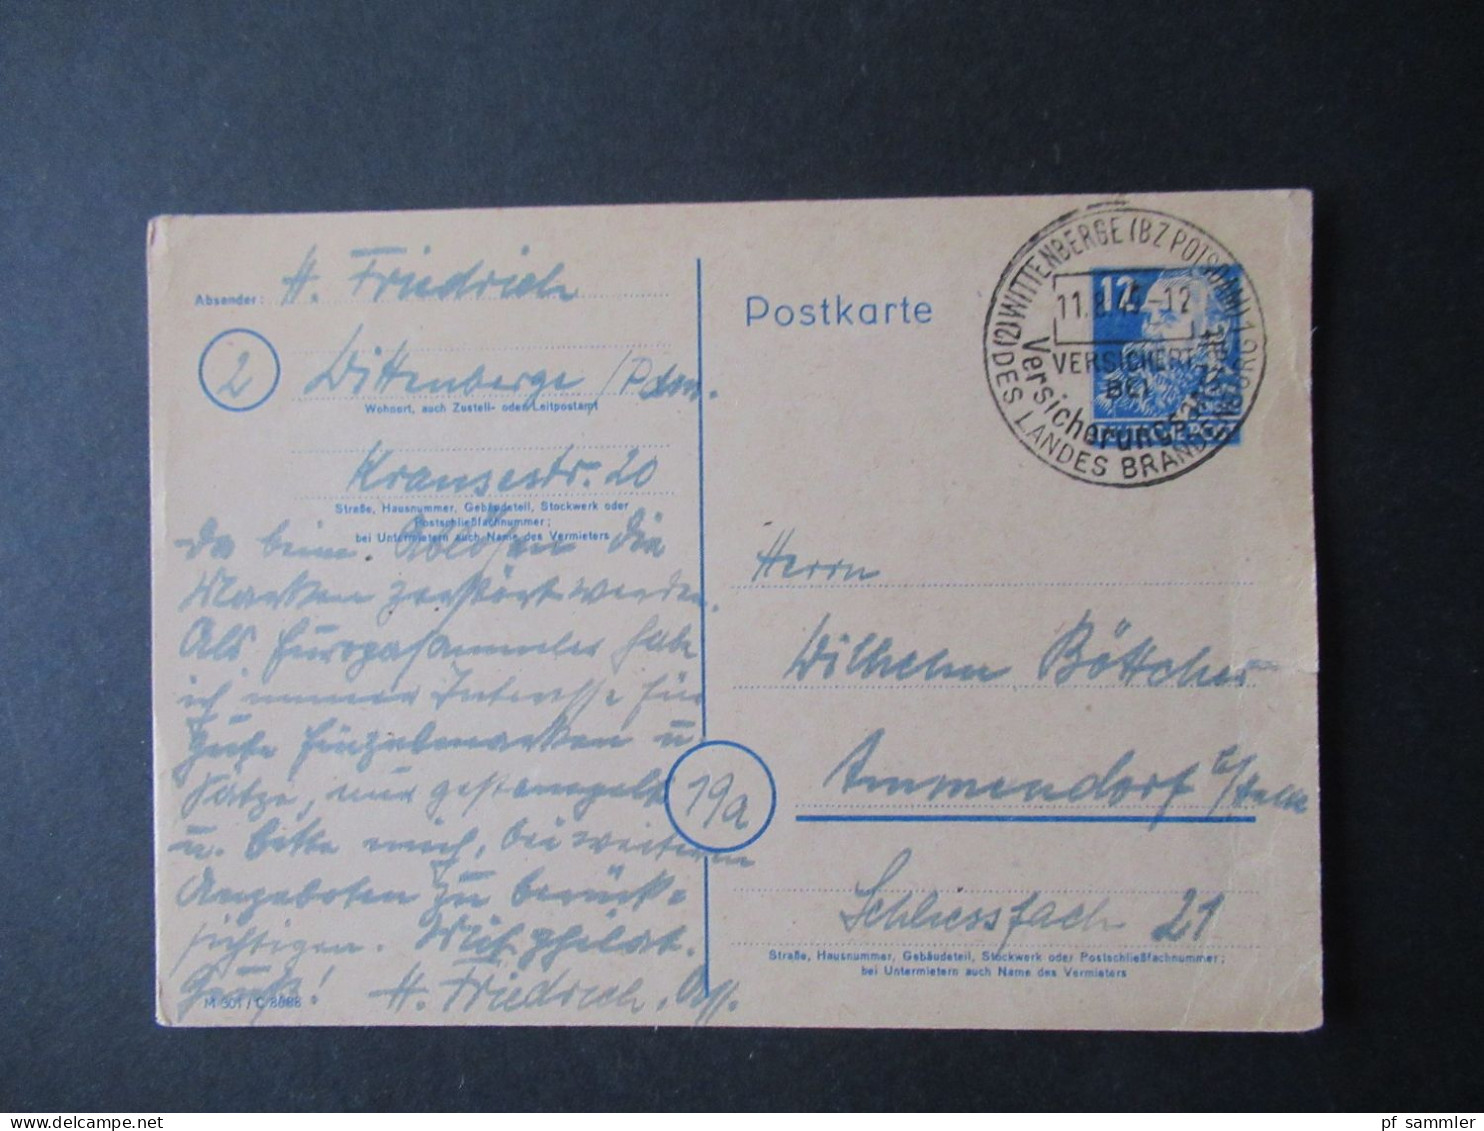 Absender: H. Friedrich
2
Wittenberge /Pdm.
Wohnort, auch Zustell- oder Leitpostamt
Krausestr. 20
Straße, Hausnummer, Gebäudeteil, Stockwerk oder
Postschließfachnummer;
bei Untermietern auch Name des Vermieters
Da beim Ablösen die
Marken zerstört werden.
Als Europasammler habe
ich immer Interesse für
gute Einzelmarken u.
Sätze, nur gestempelt
u. bitte mich, bei weiteren
Angeboten zu berück-
sichtigen. Mit philat.
Gruß! H. Friedrich,
M 301 / C 8088
Postkarte
12
(2) WITTENBERGE (BZ POTSDAM) 1
11.8.49.-12
VERSICHERT
BEI
Versicherungsanstalt
DES LANDES BRANDENBURG
Herrn
Wilhelm Böttcher
19a
Ammendorf
Schliessfach 21
Straße, Hausnummer, Gebäudeteil, Stockwerk oder Postschließfachnummer;
bei Untermietern auch Name des Vermieters
pf_sammler